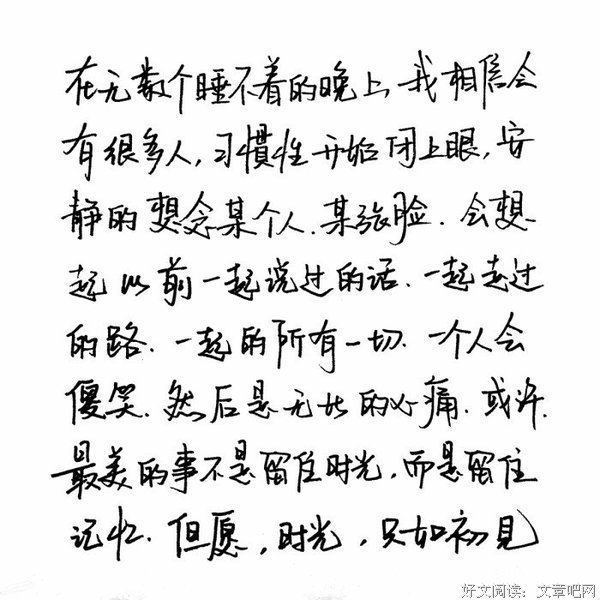 在无数个睡不着的晚上,我相信会
有很多人,习惯性开始闭上眼,安
静的想念某个人.某张脸.会想
起以前一起说过的话.一起走过
的路.一起的所有一切.一个人会
傻笑.然后是无比的心痛.或许.
最美的事不是留住时光,而是留住
记忆.但愿,时光,只如初見
好文阅读：文章吧网